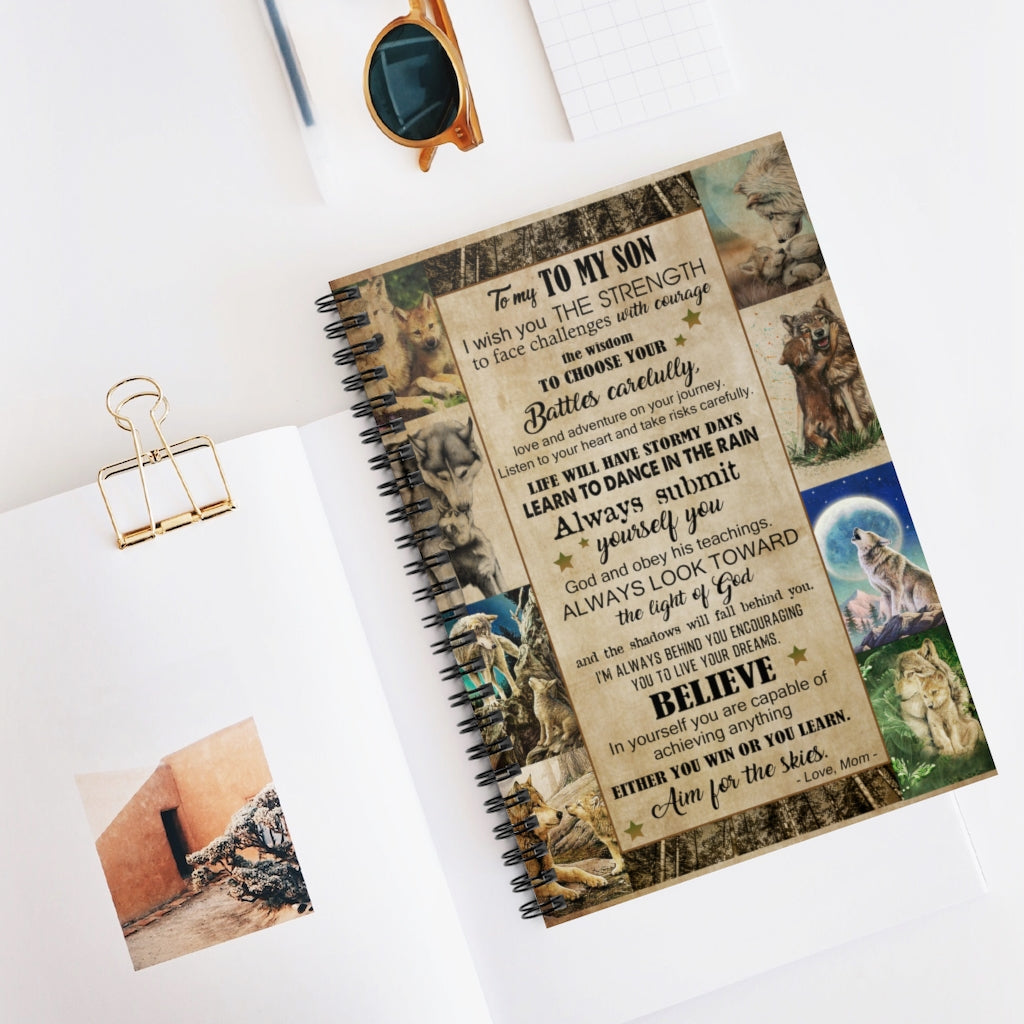 To my TO MY SON
I wish you THE STRENGTH
to face challenges with courage
the wisdom
TO CHOOSE YOUR
Battles carelully,
love and adventure on your journey.
Listen to your heart and take risks carefully.
LIFE WILL HAVE STORMY DAYS
LEARN TO DANCE IN THE RAIN
Always submit
yourself you
God and obey his teachings.
ALWAYS LOOK TOWARD
the light of God
and the shadows will fall behind you.
I'M ALWAYS BEHIND YOU ENCOURAGING
YOU TO LIVE YOUR DREAMS.
BELIEVE
In yourself you are capable of
achieving anything
EITHER YOU WIN OR YOU LEARN.
Aim for the skies.
- Love, Mom -